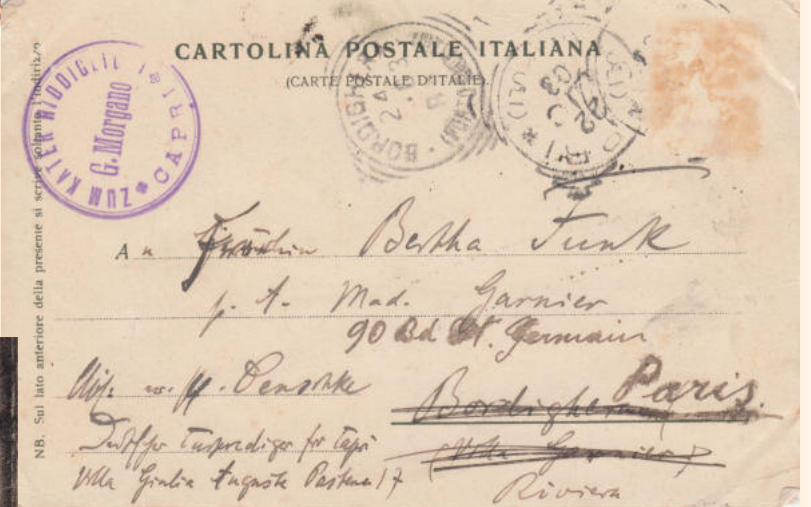 CARTOLINA POSTALE ITALIANA
(CARTE POSTALE D'ITALIE).
ZUM KATER HIDDIGEIGEI
G. Morgano
CAPRI
BORDIGHERA
24
03
NB. Sul lato anteriore della presente si scrive soltanto l'indirizzo
A n Fräulein Bertha Funk
p. A. Mad. Garnier
90 Bd St. Germain
Paris.
Bordighera
(Villa Garnier)
Riviera
Villa Giulia Augusta 17